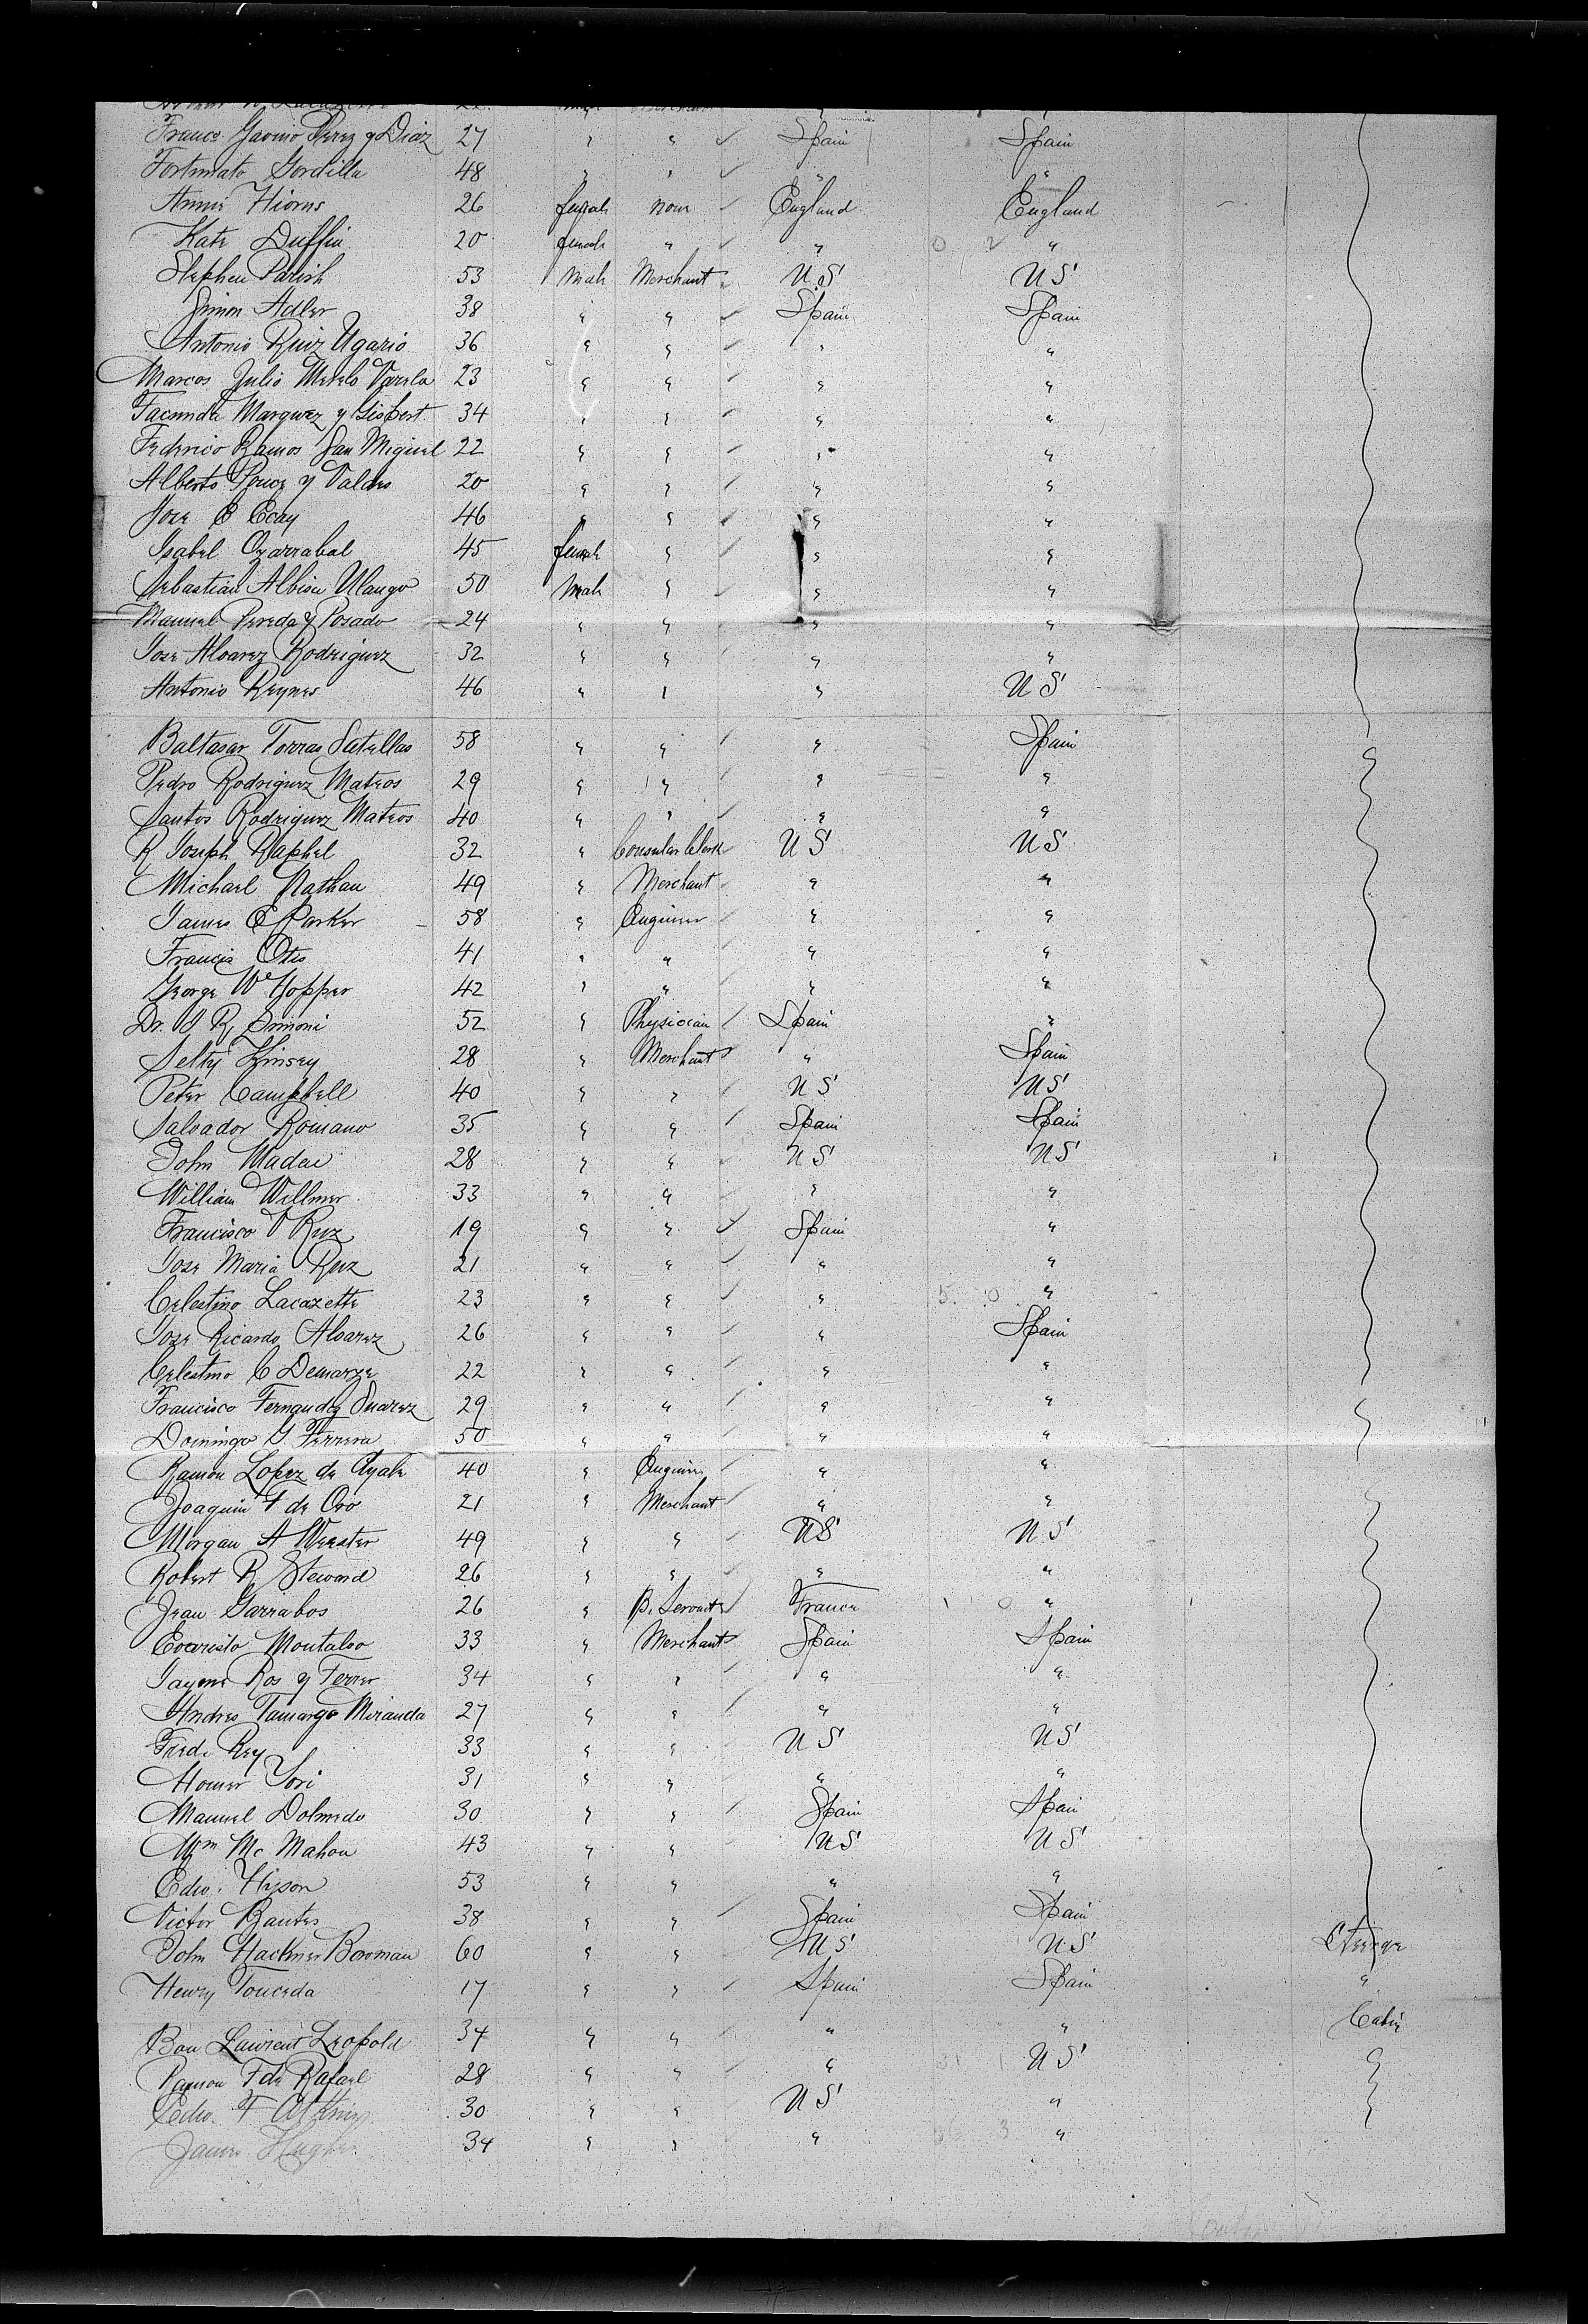 Franco Gavino Perez y Diaz 27 " " ✓ Spain Spain
Fortunato Gordilla 48 " " ✓ " "
Annie Hiorns 26 female none ✓ England England
Kate Duffin 20 female " ✓ " "
Stephen Parish 53 Male Merchant U.S U S
Simon Adler 38 " " ✓ Spain Spain
Antonio Ruiz Ugario 36 " " ✓ " "
Marcos Julio Merelo Varela 23 " " ✓ " "
Facunda Marquez y Gisbert 34 " " ✓ " "
Federico Ramos San Miguel 22 " " ✓ " "
Alberto Ponce y Valdes 20 " " ✓ " "
Jose E Ecay 46 " " ✓ " "
Isabel 45 female " ✓ " "
Sebastian Albisu Ulango 50 Male " ✓ " "
Manuel Pereda y Posado 24 " " ✓ " "
Jose Alvarez Rodriguez 32 " " ✓ " "
Antonio Reynes 46 " " " U S
Baltasar Torras 58 " " ✓ " Spain
Pedro Rodriguez Mateos 29 " " ✓ " "
Santos Rodriguez Mateos 40 " " ✓ " "
R Joseph Raphel 32 " Consular Clerk U S U S
Michael Nathan 49 " Merchant " "
James E Parker 58 " Engineer ✓ " "
Francis Otis 41 " " ✓ " "
George W Hopper 42 " " ✓ " "
Dr. J R Simoni 52 " Physician ✓ Spain "
Kinsey 28 " Merchant ✓ " Spain
Peter Campbell 40 " " ✓ U S U S
Salvador Romano 35 " " ✓ Spain Spain
John Maden 28 " " ✓ U S U S
William Willmer 33 " " ✓ " "
Francisco V Ruz 19 " " ✓ Spain "
Jose Maria Ruz 21 " " ✓ " "
Celestino Lacazette 23 " " ✓ " "
Jose Ricardo Alvarez 26 " " ✓ " Spain
Celestino C 22 " " ✓ " "
Francisco Fernandez Suarez 29 " " ✓ " "
Domingo G Ferrera 50 " " " "
Ramon Lopez de Ayala 40 " Engineer ✓ " "
Joaquin F de Oro 21 " Merchant ✓ " "
Morgan A Webster 49 " " ✓ U S U S
Robert R Steward 26 " " ✓ " "
Jean Garrabos 26 " Servant ✓ France "
Evaristo Montalvo 33 " Merchant ✓ Spain Spain
Jayme Ros y Ferrer 34 " " ✓ " "
Andres Tamargo Miranda 27 " " ✓ " "
Fredk Rey 33 " " U S U S
Homer Yori 31 " " " "
Manuel Dolmedo 30 " " ✓ Spain Spain
Wm Mc Mahon 43 " " U S U S
Edw. Hijson 53 " " " "
Victor Bautes 38 " " ✓ Spain Spain
John Hackner Bowman 60 " " U S U S Steerge
Henry Touceda 17 " " ✓ Spain Spain "
Bou Laurent Leopold 34 " " ✓ " " Cabin
Ramon F de Rafael 28 " " ✓ " U S "
Edw. F Atkins 30 " " U S " "
James Hughes 34 " " " "